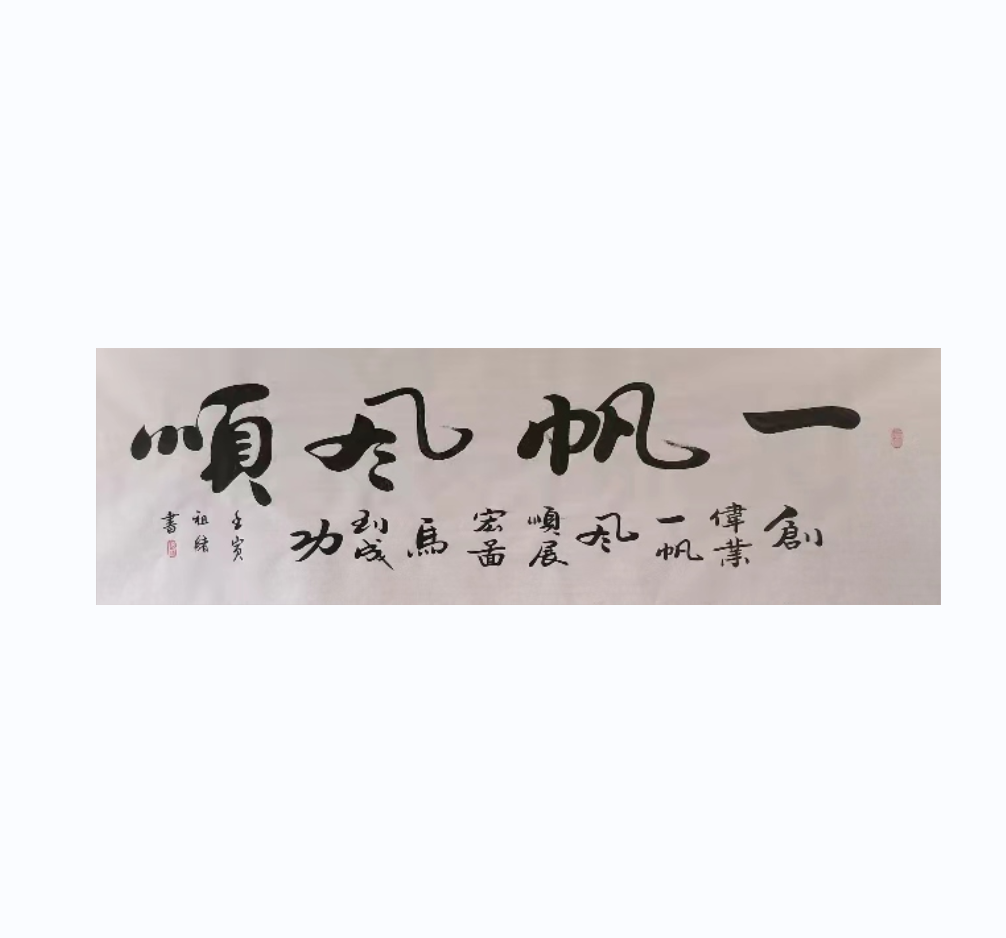 一帆風順
創偉業一帆風順展宏圖馬到成功
壬寅
祖
書